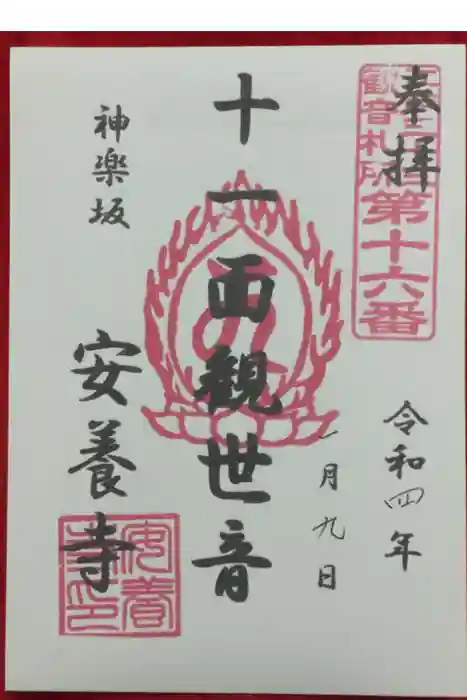 奉拝
観音札所
第十六番
令和四年
一月九日
十一面観世音
神楽坂
安養寺
安養寺印